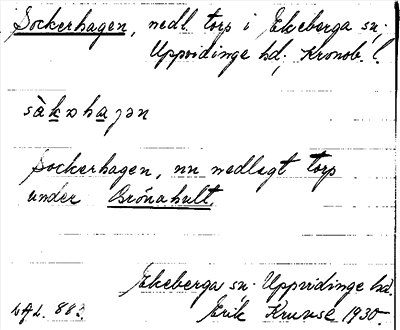 Sockerhagen, nedl. torp i Ekeberga sn.;
Uppvidinge hd; Kronob. l
sàkɷhaɟən
Sockerhagen, nu nedlagt torp
under Brönahult.
Ekeberga sn. Uppvidinge hd.
Erik Krunse 1930.